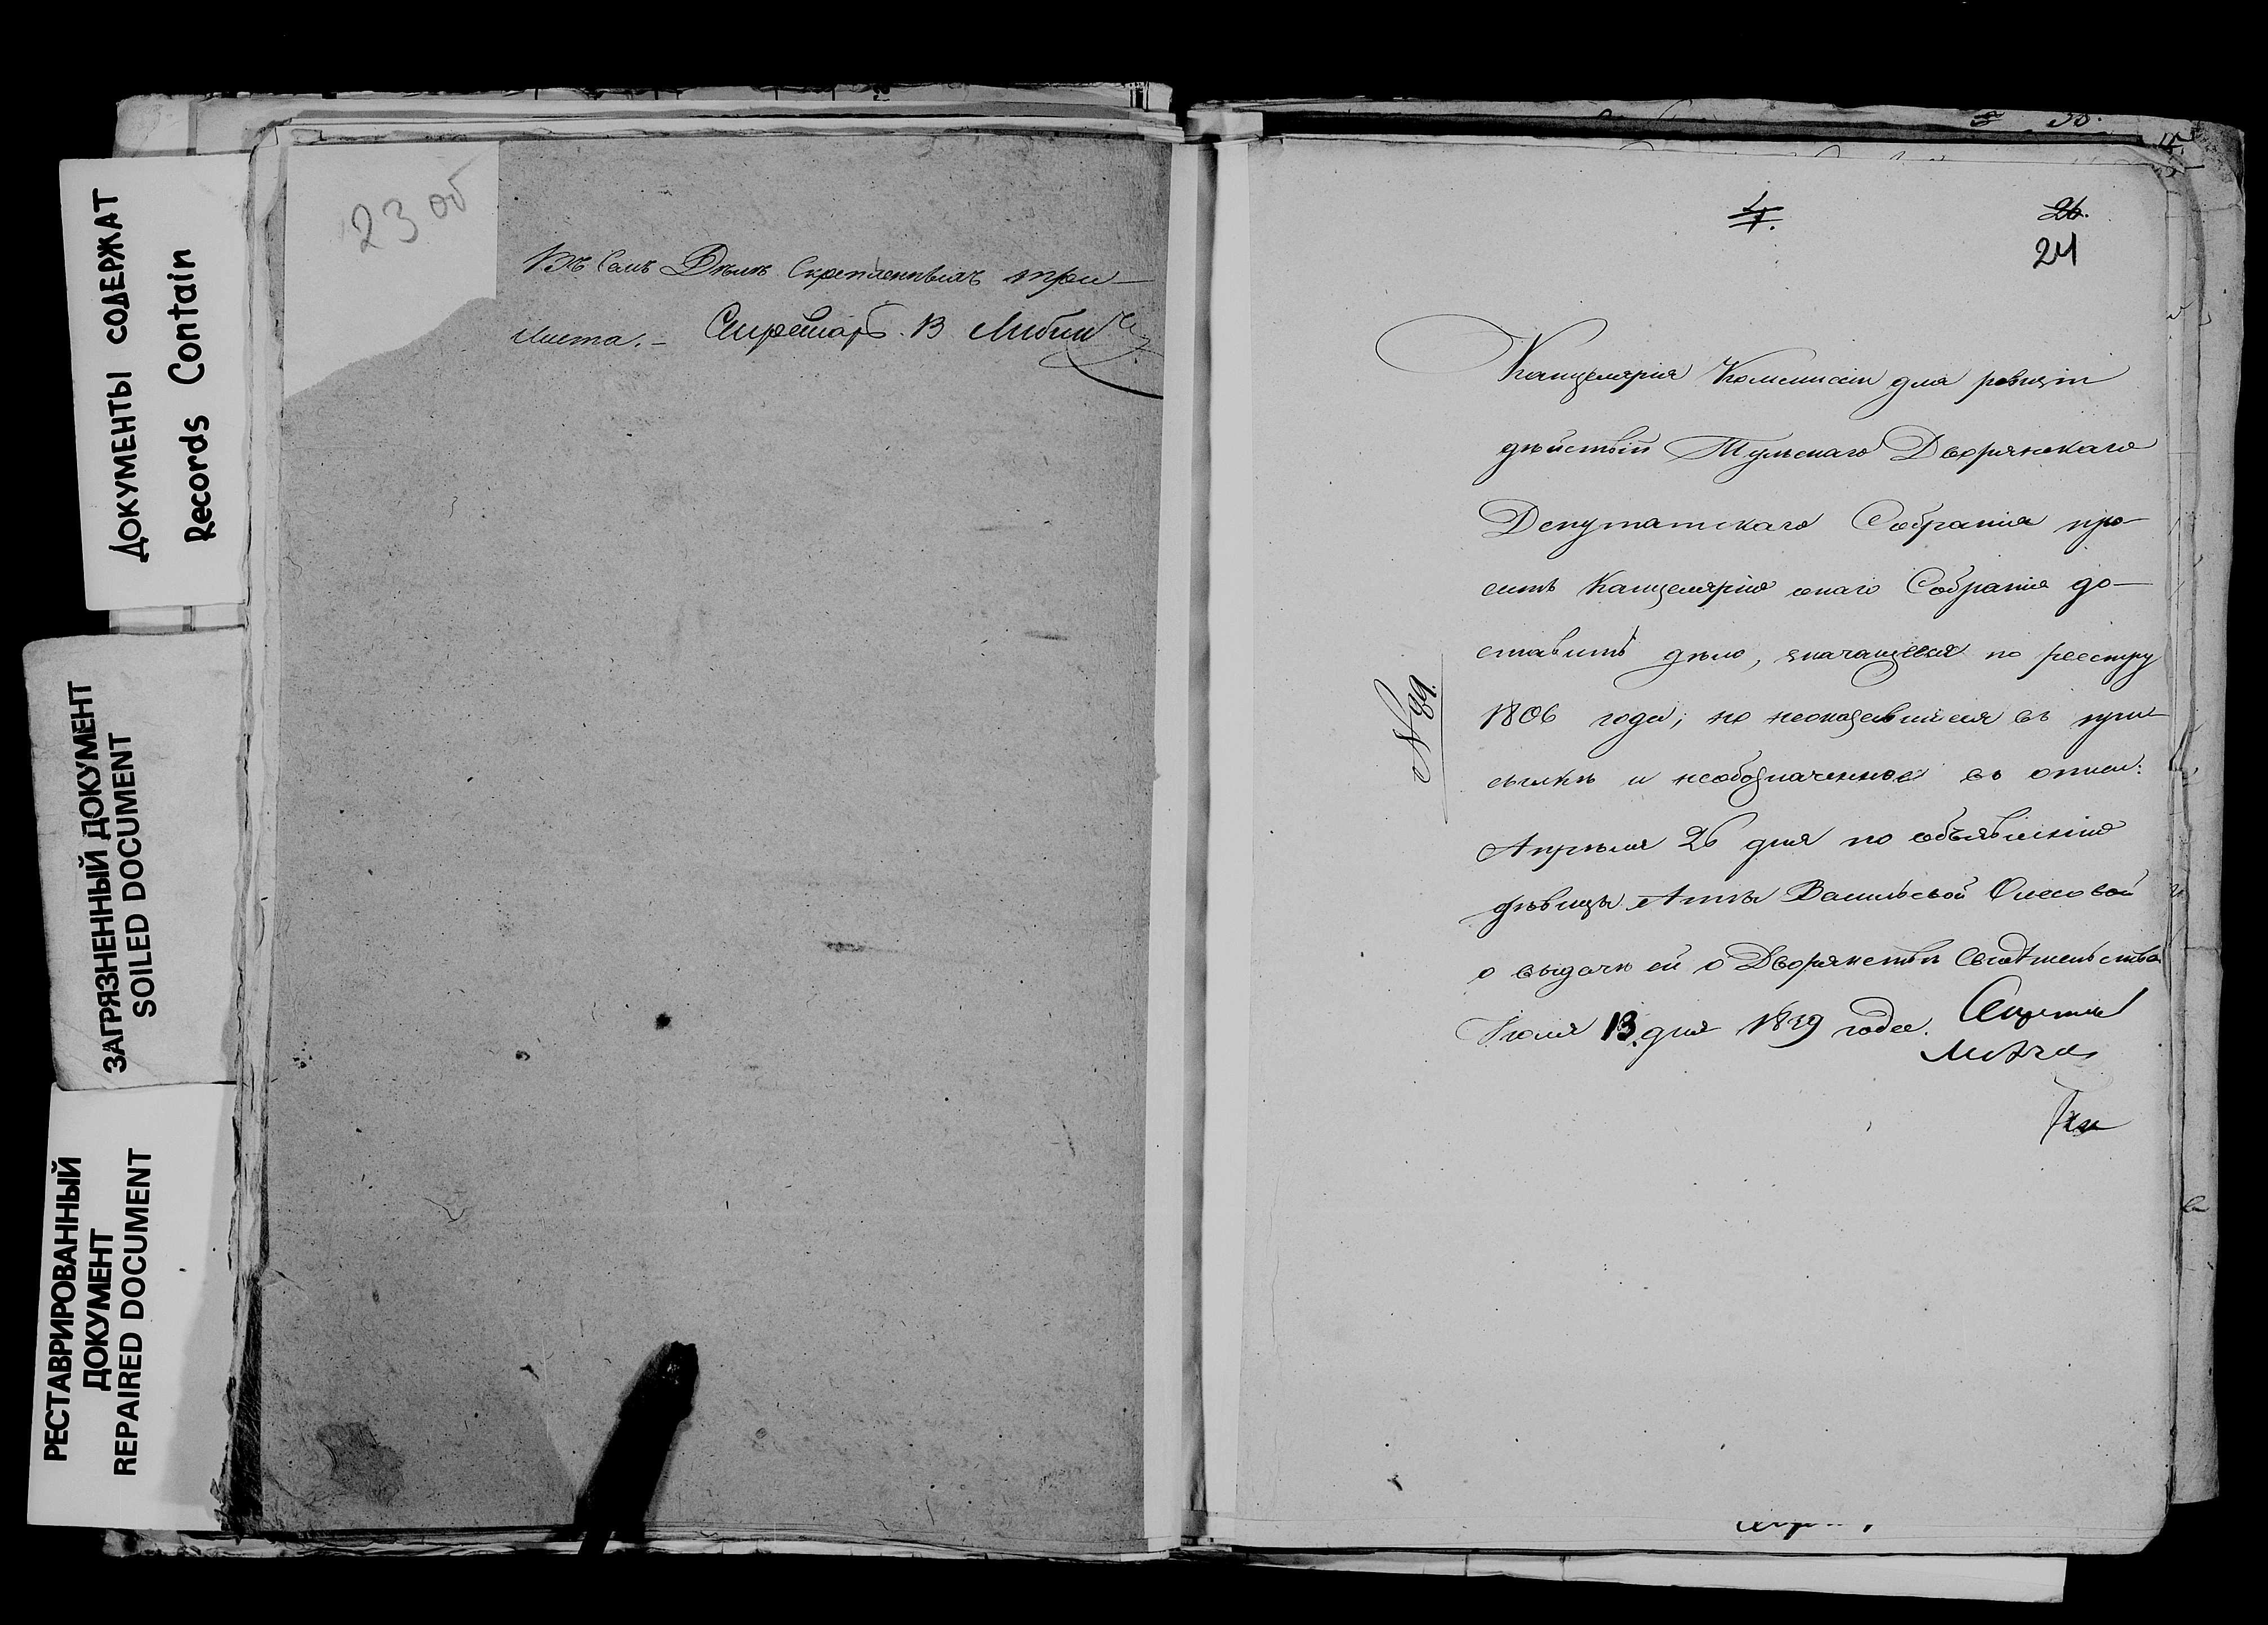 ДОКУМЕНТЫ СОДЕРЖАТ
Records Contain
ЗАГРЯЗНЕННЫЙ ДОКУМЕНТ
SOILED DOCUMENT
РЕСТАВРИРОВАННЫЙ
ДОКУМЕНТ
REPAIRED DOCUMENT
23 об
Въ Семъ Дѣлѣ Скрепленныхъ три
листа. Секретарь В
4.
26.
24
Канцелярія Коммисіи для ревизіи
дѣйствій Тульскаго Дворянскаго
Депутатскаго Собранія про-
ситъ Канцелярію онаго Собранія до-
ставить дѣло, значащееся по реестру
1806 года, но неоказавшееся въ при-
сылкѣ и необозначенное въ описи:
№ 89.
Апрѣля 26 дня по объявленію
дѣвицы Анны Васильевой
о выдачѣ ей о Дворянствѣ Свидѣтельства
Іюля 13 дня 1839 года.